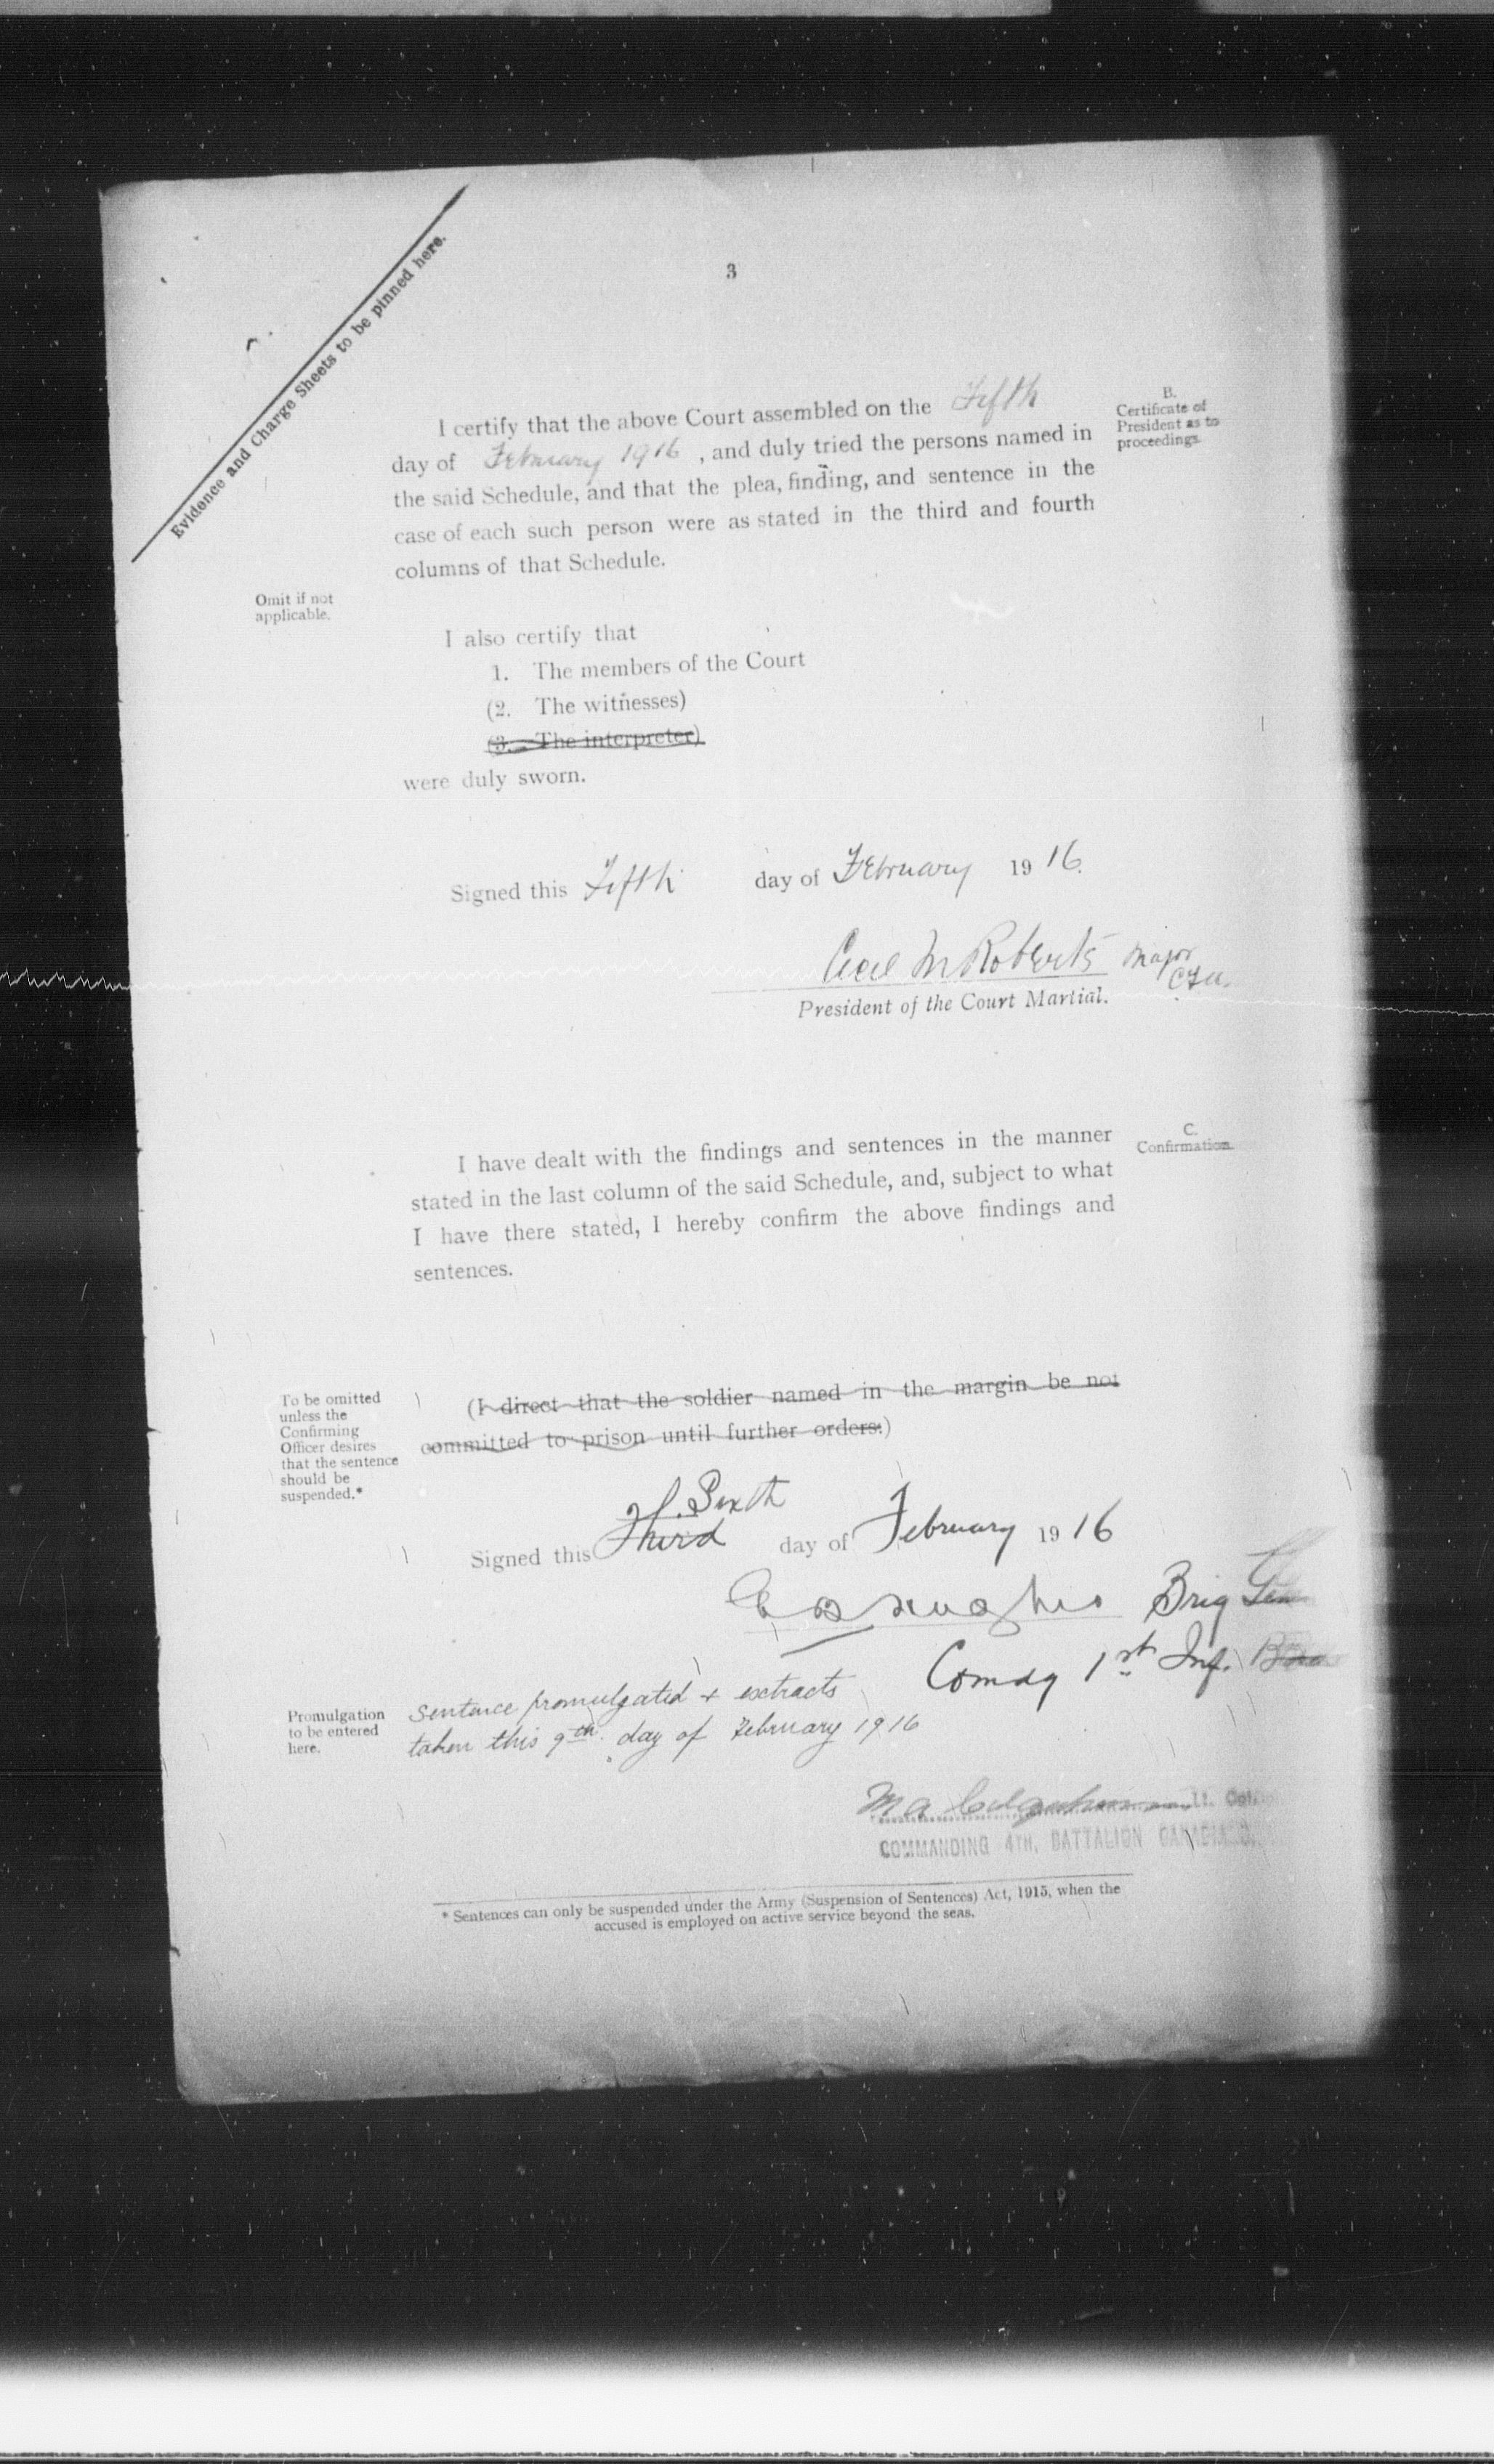 Evidence and Charge Sheets to be pinned here.
3
I certify that the above Court assembled on the Fifth
day of February 1916, and duly tried the persons named in
the said Schedule, and that the plea, finding, and sentence in the
case of each such person were as stated in the third and fourth
columns of that Schedule.
B.
Certificate of
President as to
proceedings.
Omit if not
applicable.
I also certify that
1. The members of the Court
(2. The witnesses)
(3. The interpreter)
were duly sworn.
Signed this Fifth day of February 1916.
Cecil M Roberts Major
President of the Court Martial.
I have dealt with the findings and sentences in the manner
stated in the last column of the said Schedule, and, subject to what
I have there stated, I hereby confirm the above findings and
sentences.
C.
Confirmation.
To be omitted
unless the
Confirming
Officer desires
that the sentence
should be
suspended.*
(I direct that the soldier named in the margin be not
committed to prison until further orders.)
Sixth
Signed this Third day of February 1916
Brig Gen
Comdg 1st Inf.
Promulgation
to be entered
here.
Sentence promulgated + extracts
taken this 9th day of February 1916
Lt. Col.
COMMANDING 4TH. BATTALION
* Sentences can only be suspended under the Army (Suspension of Sentences) Act, 1915, when the
accused is employed on active service beyond the seas.